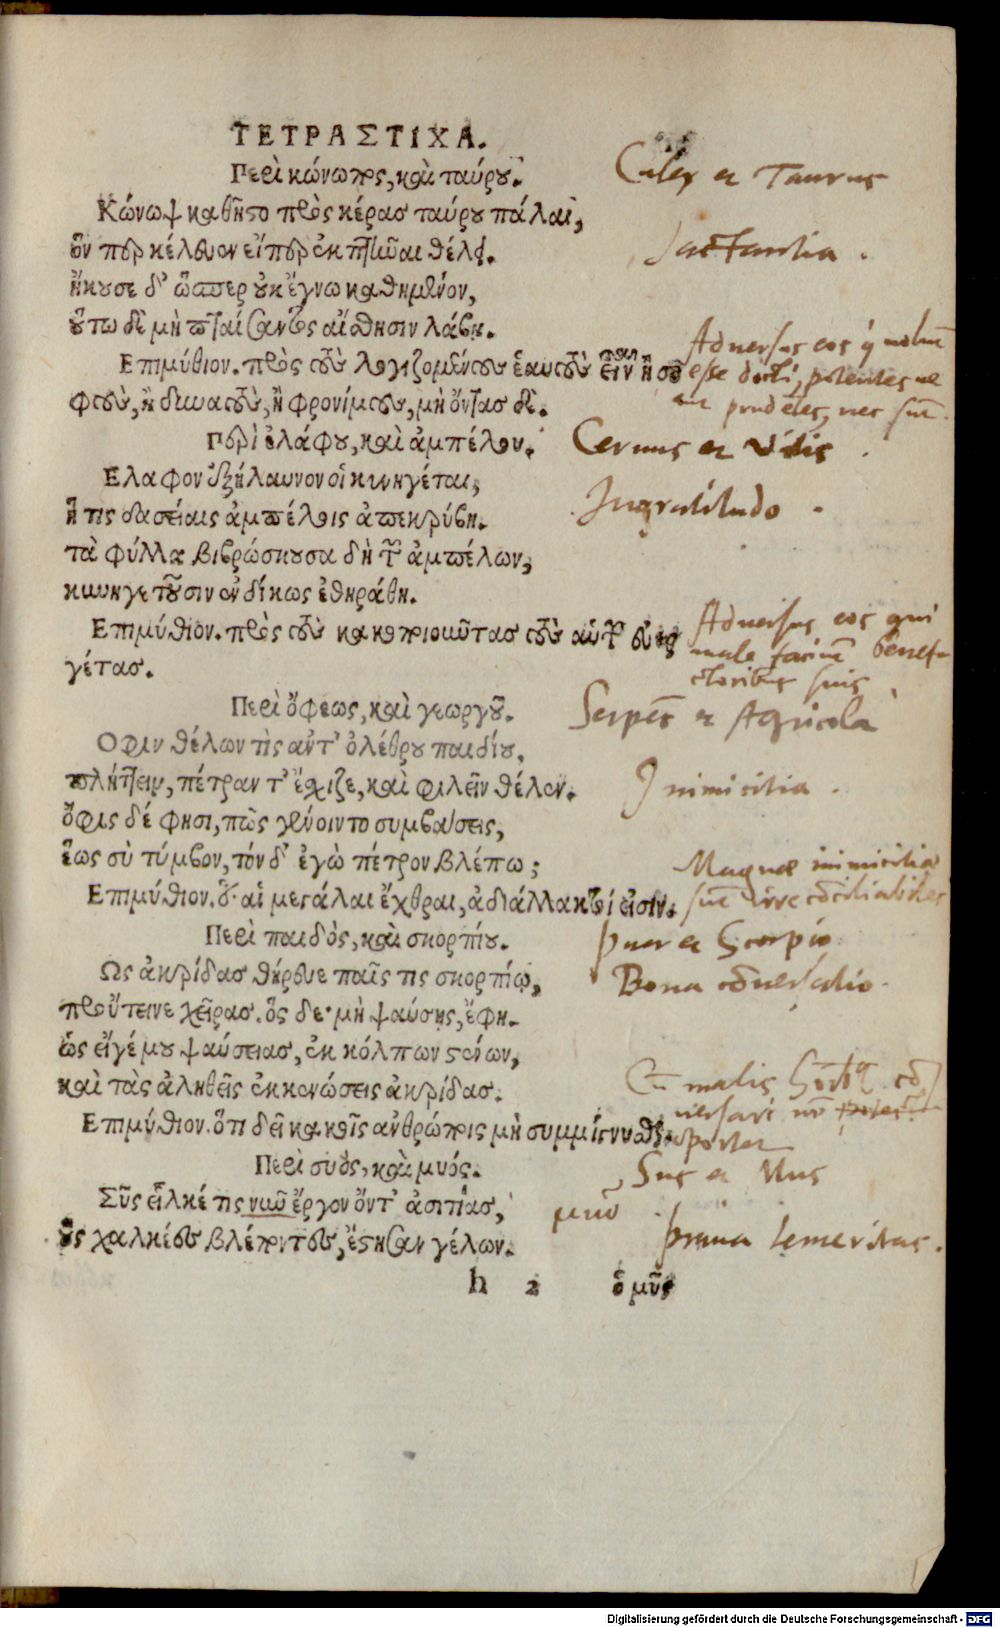 ΤΕΤΡΑΣΤΙΧΑ.
Περὶ κώνωπος, καὶ ταύρου.
Κώνωψ καθῆστο πρὸς κέρασ ταύρου πάλαι,
ὃν περ κέλευον εἴπερ ἐκπτῆναι θέλει.
ἤκουσε δ' ὥσπερ οὐκ ἔγνω καθημένον,
οὕτω δὲ μὴ πταίσαντος αἴσθησιν λάβῃ.
Επιμύθιον. πρὸς τοὺς λογιζομένους ἑαυτοὺς εἶν ἢ σο
φοὺς, ἢ δυνατοὺς, ἢ φρονίμους, μὴ ὄντασ δέ.
Περὶ ἐλάφου, καὶ ἀμπέλου.
Ελαφον ἐξήλαυνον οἱ κυνηγέται,
ἥ τις δασείαις ἀμπέλοις ἀπεκρύβη.
τὰ φύλλα βιβρώσκουσα δὴ τῶν ἀμπέλων,
κυνηγετοῦσιν ἐνδίκως ἐθηράθη.
Επιμύθιον. πρὸς τοὺς κακοποιοῦντασ τοὺς αὐτῶν εὐερ
γέτασ.
Περὶ ὄφεως, καὶ γεωργοῦ.
Οφιν θέλων τὶς ἀντ' ὀλέθρου παιδίου,
πλήττειν, πέτραν τ' ἔχιζε, καὶ φιλεῖν θέλεν.
ὄφις δέ φησι, πῶς γένοιντο συμβάσεις,
ἕως σὺ τύμβον, τόν δ' ἐγὼ πέτρον βλέπω;
Επιμύθιον. ὅτι αἱ μεγάλαι ἔχθραι, ἀδιάλλακτοί εἰσιν.
Περὶ παιδὸς, καὶ σκορπίου.
Ως ἀκρίδασ θήρευε παῖς τις σκορπίῳ,
προὔτεινε χεῖρασ. ὃς δὲ· μὴ ψαύσῃς, ἔφη.
ὡς εἴγέ μου ψαύσειασ, ἐκ κόλπων στένων,
καὶ τὰς ἀληθεῖς ἐκκενώσεις ἀκρίδασ.
Επιμύθιον. ὅτι δεῖ κακοῖς ἀνθρώποις μὴ συμμίγνυσθαι.
Περὶ συὸς, καὶ μυός.
Σῦς εἷλκέ τις νυῶ ἔργον ὄντ' ἀσιτίασ,
οὓς χαλκέας βλέποντας, ἔστησαν γέλων.
h 2 ὁ μῦς
Culex et Taurus
Jactantia.
Adversus eos q volunt
esse docti, potentesve
aut prudētes, nec sunt.
Cervus et Vitis.
Ingratitudo.
Adversus eos qui
male faciunt benefa
ctoribus suis.
Serpēs et Agricola
Inimicitia.
Magnae inimicitiae
sunt irrecōciliabiles
puer et Scorpio.
Bona cōversatio.
Cū malis cō
versari nō
oportet
Sus et Mus
μυῶ.
prima temeritas.
Digitalisierung gefördert durch die Deutsche Forschungsgemeinschaft - DFG